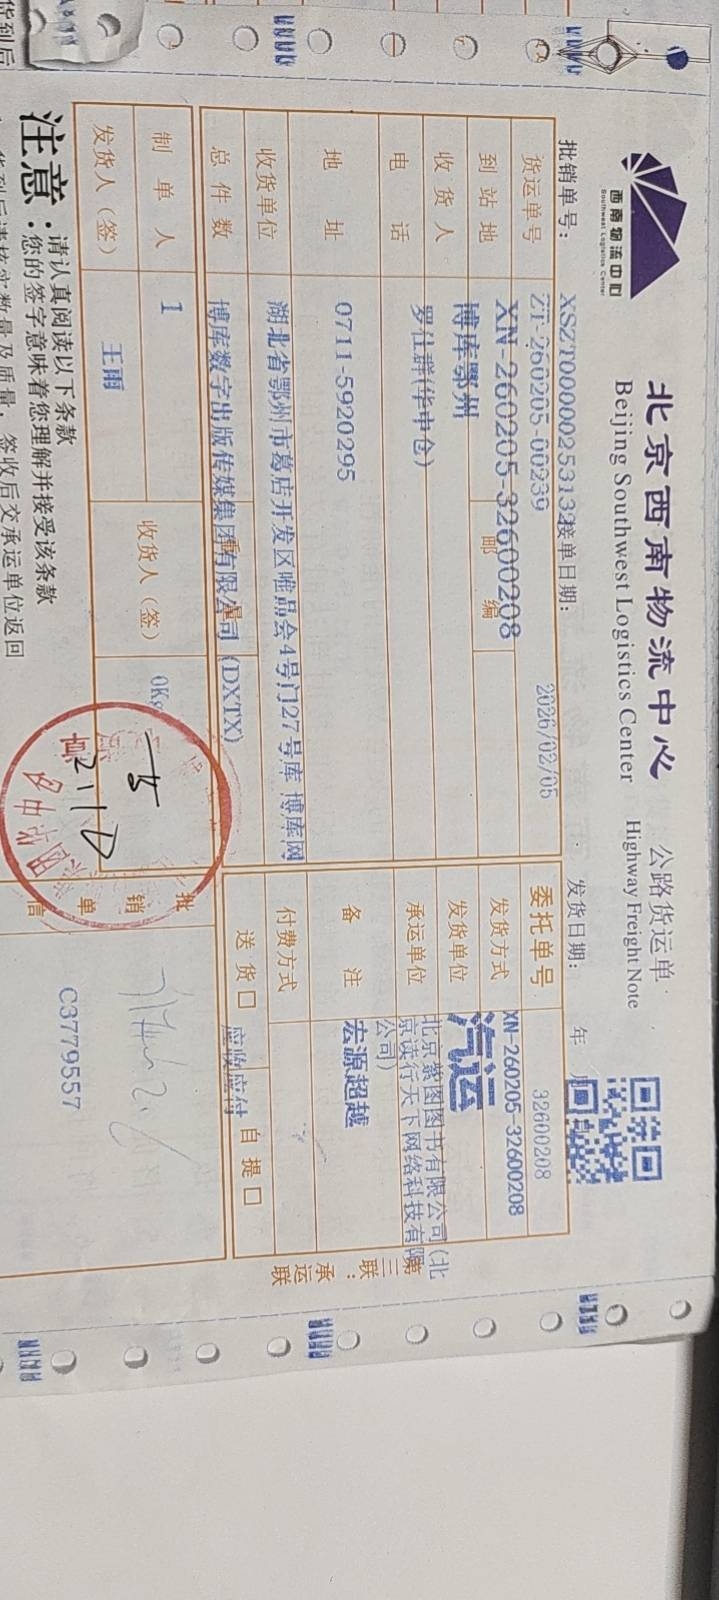 西南物流中心
Southwest Logistics Center
北京西南物流中心 公路货运单
Beijing Southwest Logistics Center Highway Freight Note
批销单号: XSZT0000025313 接单日期: 2026/02/05 发货日期: 年 月
货运单号 ZT-260205-00239 委托单号 32600208
XN-260205-32600208 XN-260205-32600208
到站地 博库鄂州 邮编 发货方式 汽运
收货人 罗仕群(华中仓) 发货单位 北京紫图图书有限公司(北
京读行天下网络科技有限
公司)
电话 0711-5920295 承运单位 宏源超越
地址 湖北省鄂州市葛店开发区唯品会4号门27号库 博库网 备注 应收应付
收货单位 博库数字出版传媒集团有限公司(DXTX) 付费方式
总件数 1 重量 0Kg 送货□ 自提□
制单人 王雨 收货人(签) 批销单信 C3779557
发货人(签)
第三联:承运联
注意:
请认真阅读以下条款
您的签字意味着您理解并接受该条款
货到后请核实数量及质量,签收后交承运单位返回
货到后